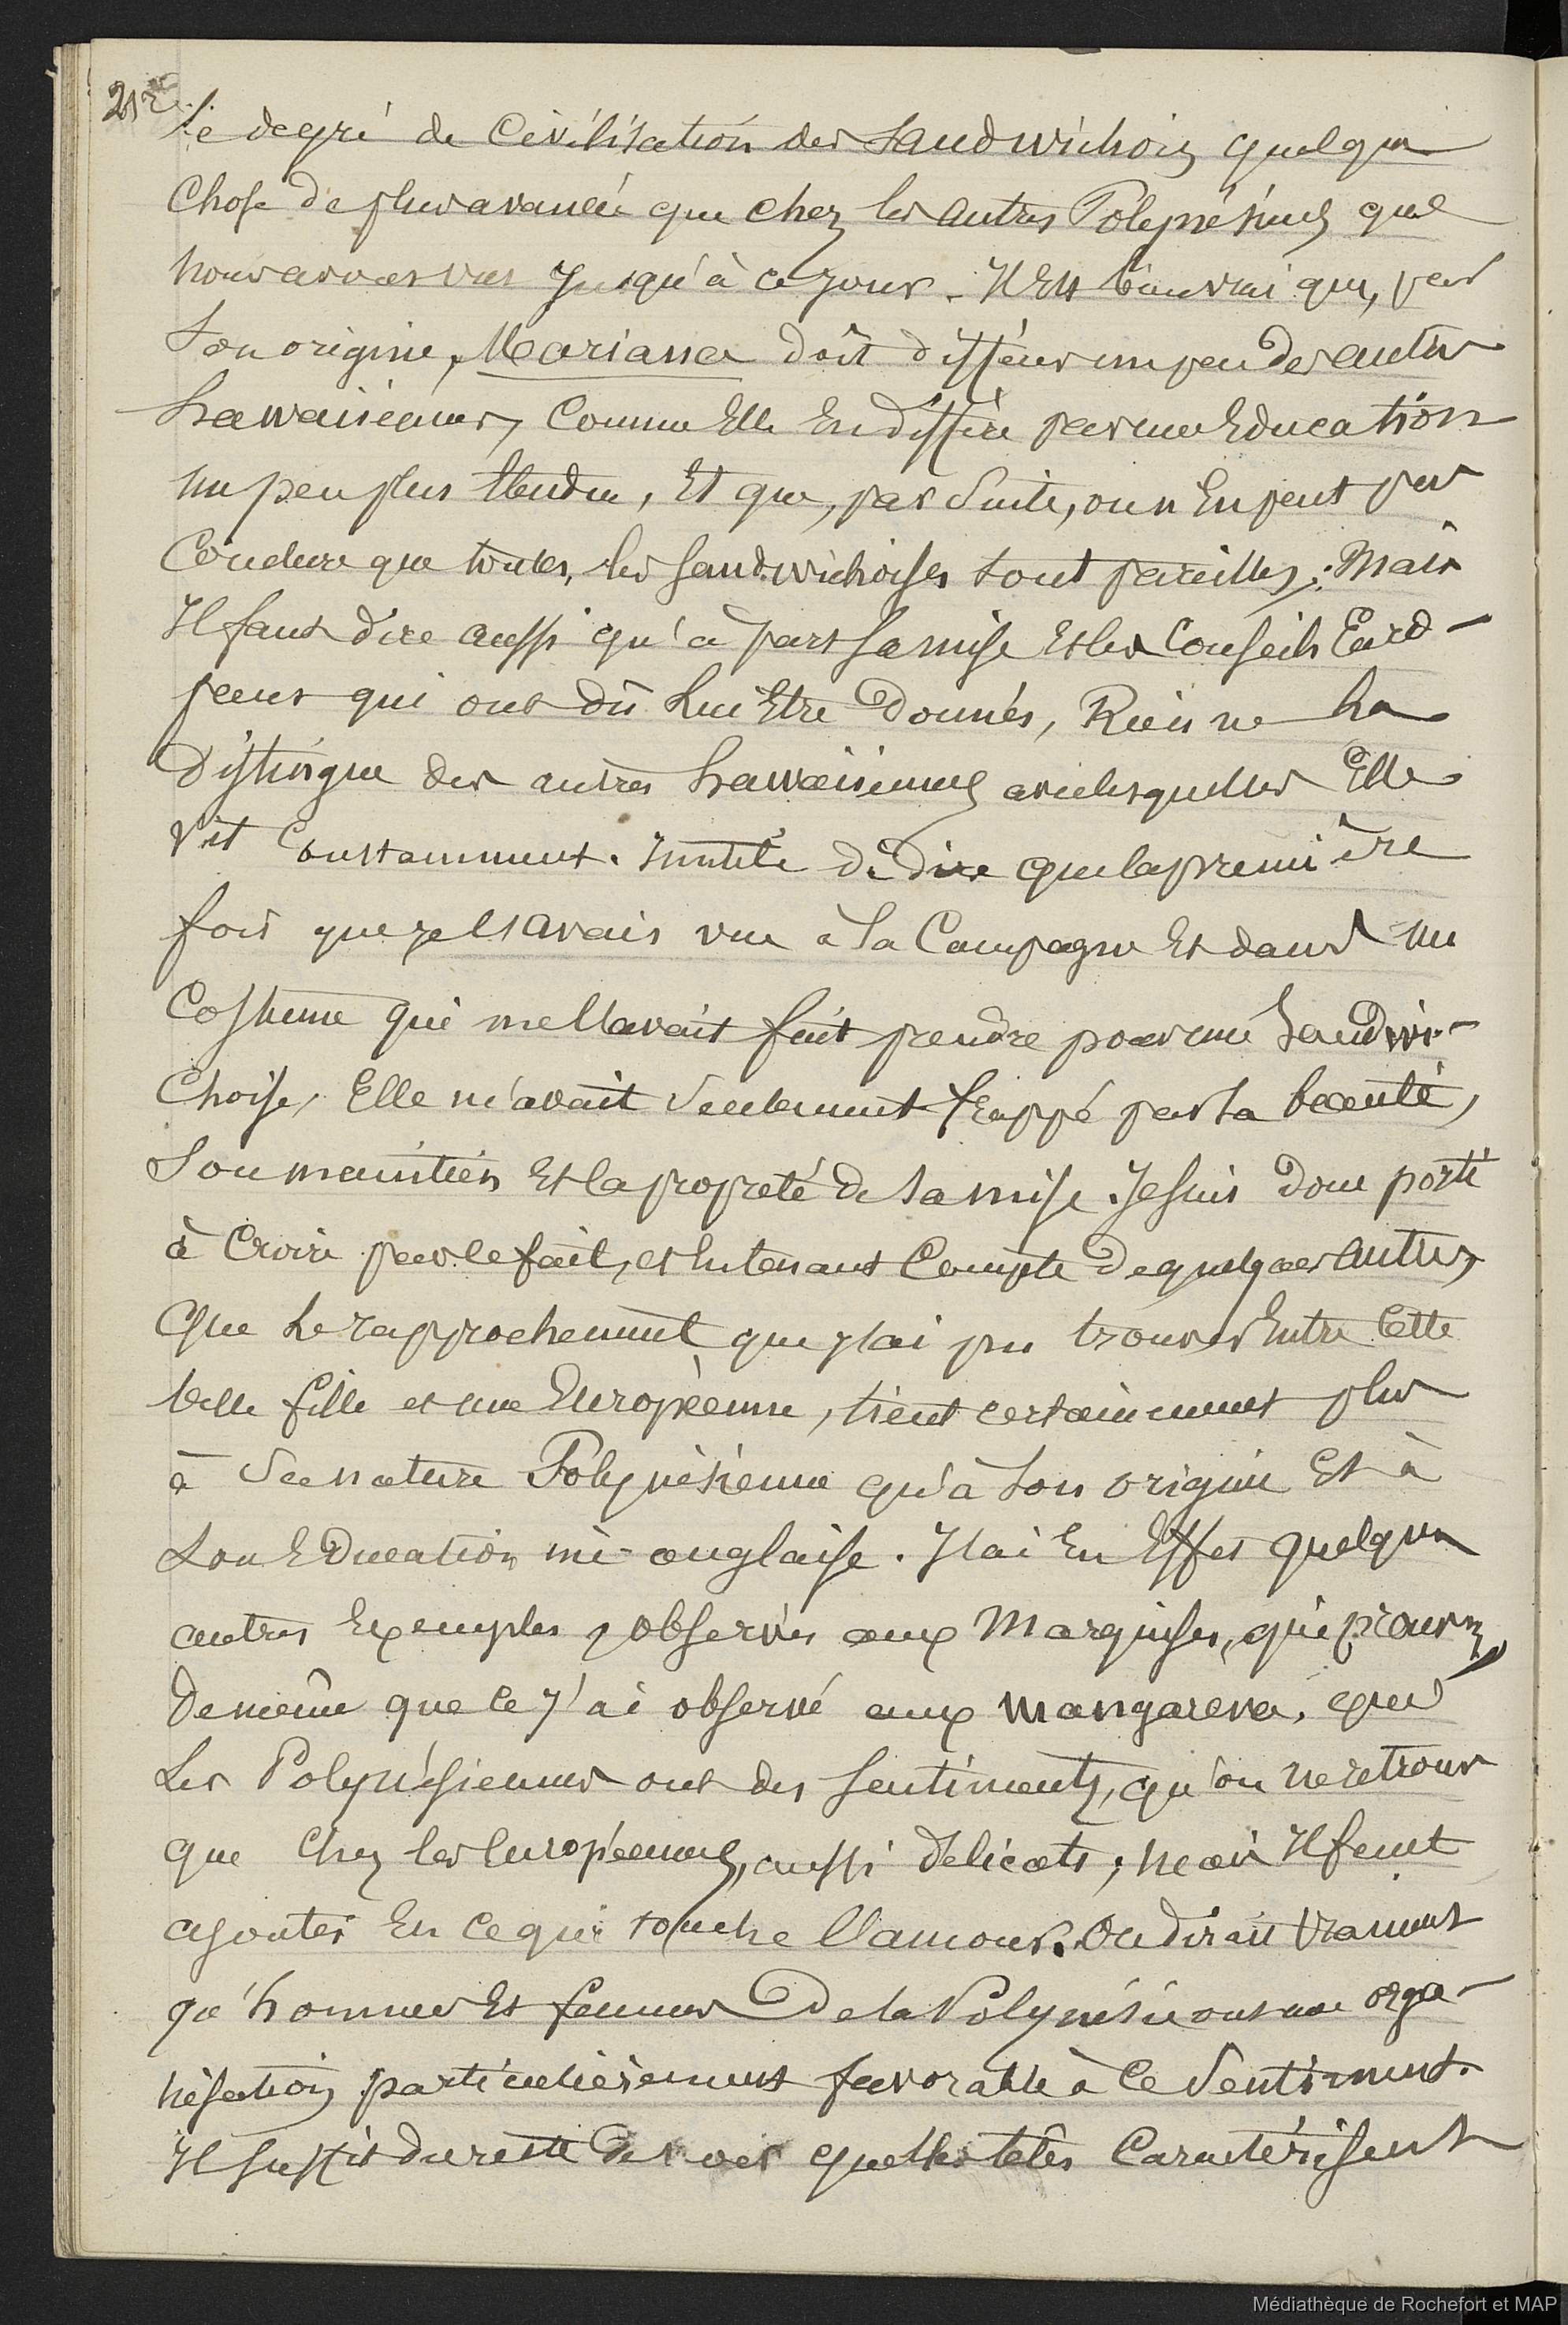 212
le degré de Civilisation des Sandwichois quelque
Chose de plus avancé que chez les autres Polynésiens que
nous avons vus Jusqu'à ce jour. Il Est bien vrai que, par
Son origine, Mariana doit différer un peu des autres
hawaiiennes, Comme Elle En diffère par une Education
un peu plus Etendue, Et que, par Suite, on n'En peut pas
Conclure que toutes, les Sandwichoises sont pareilles; Mais
Il faut dire aussi qu'à part sa mise Et les Conseils Euro-
péens qui ont dû lui Etre Donnés, Rien ne la
Distingue des autres hawaiiennes avec lesquelles Elle
Vit Constamment. Inutile de dire que la première
fois que je l'avais vue à la Campagne Et dans un
Costume qui me l'avait fait prendre pour une Sandwi-
Choise, Elle m'avait Seulement frappé par sa beauté,
Son maintien Et la propreté de sa mise. Je suis Donc porté
à Croire par le fait, et En tenant Compte de quelques autres,
Que le rapprochement que j'ai pu trouver Entre Cette
belle fille et une Européenne, tient certainement plus
à Sa nature Polynésienne qu'à son origine Et à
son Education mi-anglaise. J'ai En Effet quelques
autres Exemples, observés aux Marquises, qui prouvent,
De même que ce j'ai observé aux mangareva, que
Les Polynésiennes ont des Sentiments, qu'on ne retrouve
que Chez les Européennes, aussi délicats; mais Il faut
ajouter En ce qui touche l'amour. On dirait vraiment
qu'hommes Et femmes De la Polynésie ont une orga-
nisation particulièrement favorable à Ce Sentiment.
Il suffit du reste de voir quelles têtes Caractérisent
Médiathèque de Rochefort et MAP